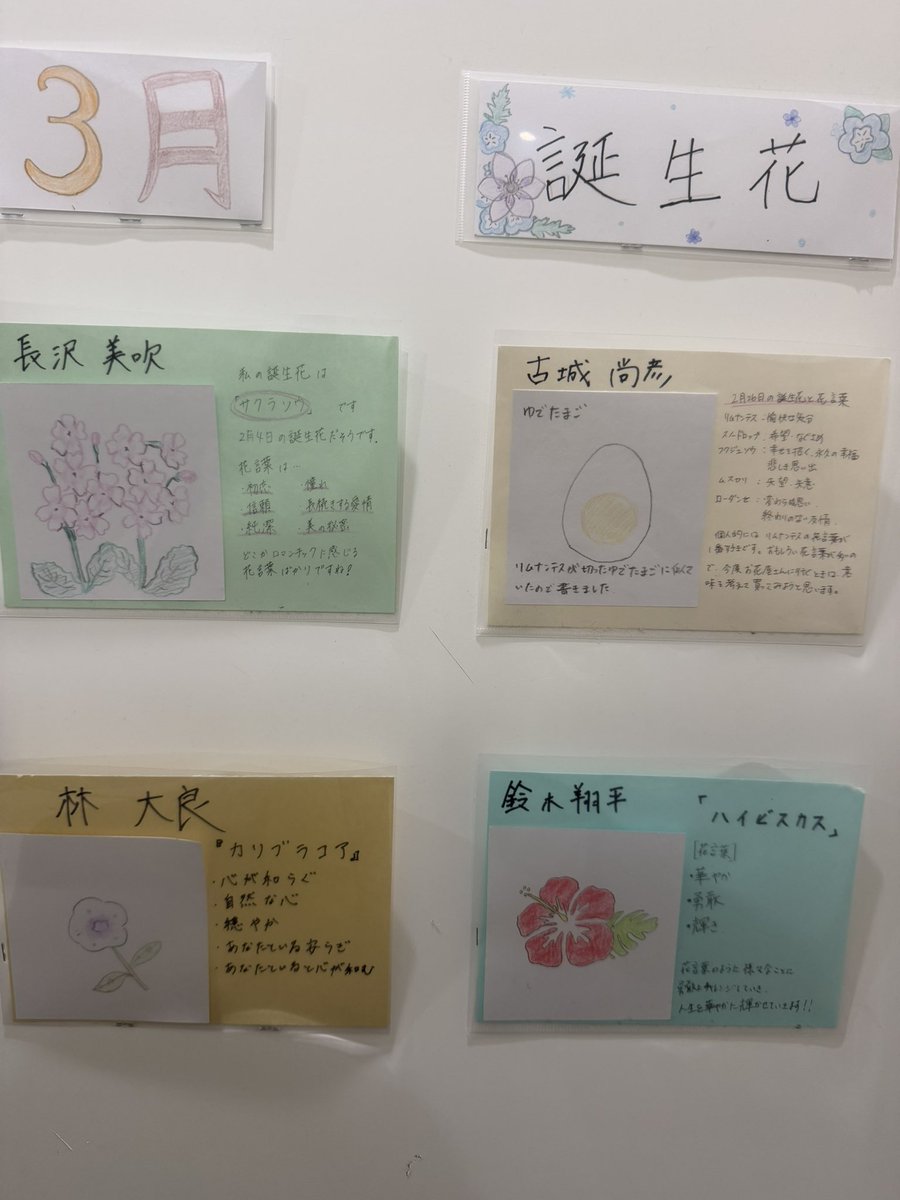 3月
誕生花
長沢 美吹
私の誕生花は
「サクラソウ」です
2月4日の誕生花だそうです。
花言葉は…
・初恋 ・憧れ
・信頼 ・長続きする愛情
・純潔 ・美の秘密
どこかロマンチックに感じる
花言葉ばかりですね!
古城 尚彦
ゆでたまご
リムナンテスが切ったゆでたまごに似て
いたので書きました
2月26日の誕生花と花言葉
リムナンテス:愉快な気分
スノードロップ:希望・なぐさめ
フクジュソウ:幸せを招く、永久の幸福
悲しき思い出
ムスカリ:失望・失意
ローダンセ:変わらぬ思い
終わりのない友情
個人的にはリムナンテスの花言葉が
1番好きです。おもしろい花言葉が多いの
で、今度お花屋さんに行くときは意
味も考えて買ってみようと思います。
林 大良
『カリブラコア』
・心が和らぐ
・自然な心
・穏やか
・あなたといると安らぐ
・あなたといると心が和む
鈴木翔平
「ハイビスカス」
[花言葉]
・華やか
・勇敢
・輝き
花言葉のように様々なことに
勇敢にチャレンジしていき、
人生を華やかに輝かせていきます!!